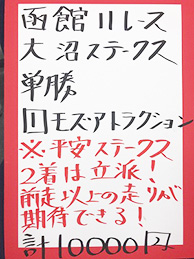 函館11レース
大沼ステークス
単勝
⑪モズアトラクション
※平安ステークス
2着は立派!
前走以上の走りが
期待できる!
計10000円